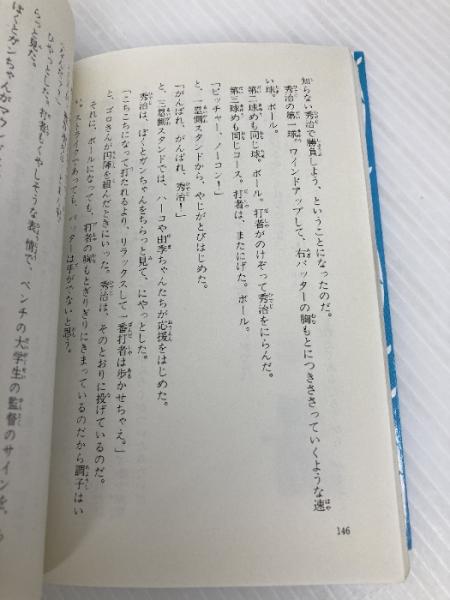 知らない秀治で勝負しよう、ということになったのだ。
秀治の第一球。ワインドアップして、右バッターの胸もとにつきささっていくような速
い球。ボール。
第二球めも同じ球。ボール。打者がのけぞって秀治をにらんだ。
第三球めも同じコース。打者は、またにげた。ボール。
「ピッチャー、ノーコン！」
と、一塁側スタンドから、やじがとびはじめた。
「がんばれ、がんばれ、秀治！」
と、三塁側スタンドでは、ハーコや由季ちゃんたちが応援をはじめた。
秀治は、ぼくとガンちゃんをちらっと見て、にやっとした。
「こちこちになって打たれるより、リラックスして一番打者は歩かせちゃえ。」
と、ゴロさんが円陣を組んだときにいった。秀治は、そのとおりに投げているのだ。
それに、ボールになっても、打者の胸もとぎりぎりにきまっているのだから調子はい
い。ストライクであっても、バッターは手がでないと思う。
ベンチの大学生の監督のサインを、
らっと見た。
146